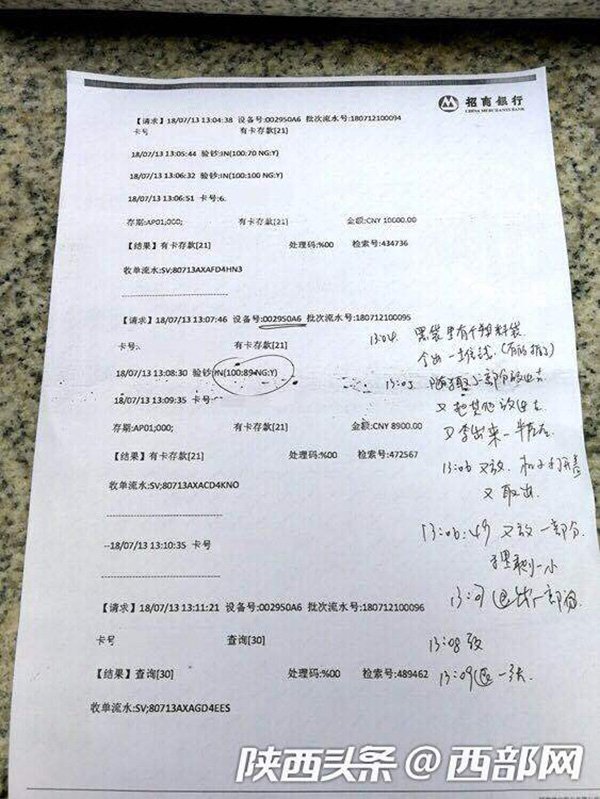 招商银行
CHINA MERCHANTS BANK
【请求】18/07/13 13:04:38 设备号:002950A6 批次流水号:180712100094
卡号 有卡存款[21]
18/07/13 13:05:44 验钞:IN(100:70 NG:Y)
18/07/13 13:06:32 验钞:IN(100:100 NG:Y)
18/07/13 13:06:51 卡号:6.
存期:AP01;000; 有卡存款[21] 金额:CNY 10000.00
【结果】有卡存款[21] 处理码:%00 检索号:434736
收单流水:SV;80713AXAFD4HN3
【请求】18/07/13 13:07:46 设备号:002950A6 批次流水号:180712100095
卡号:. 有卡存款[21]
18/07/13 13:08:30 验钞:IN(100:89 NG:Y)
18/07/13 13:09:35 卡号:
存期:AP01;000; 有卡存款[21] 金额:CNY 8900.00
【结果】有卡存款[21] 处理码:%00 检索号:472567
收单流水:SV;80713AXACD4KNO
--18/07/13 13:10:35 卡号
【请求】18/07/13 13:11:21 设备号:002950A6 批次流水号:180712100096
卡号 查询[30]
【结果】查询[30] 处理码:%00 检索号:489462
收单流水:SV;80713AXAGD4EES
13:04 黑袋里有个塑料袋
拿出一打钱
13:05 一部分放进去
又把其他放进去
又拿出来一半左右
13:06 又放
又取出
13:06:49 又放一部分
一小
13:07 退出一部分
13:08 放
13:09 退一张
陕西头条@西部网